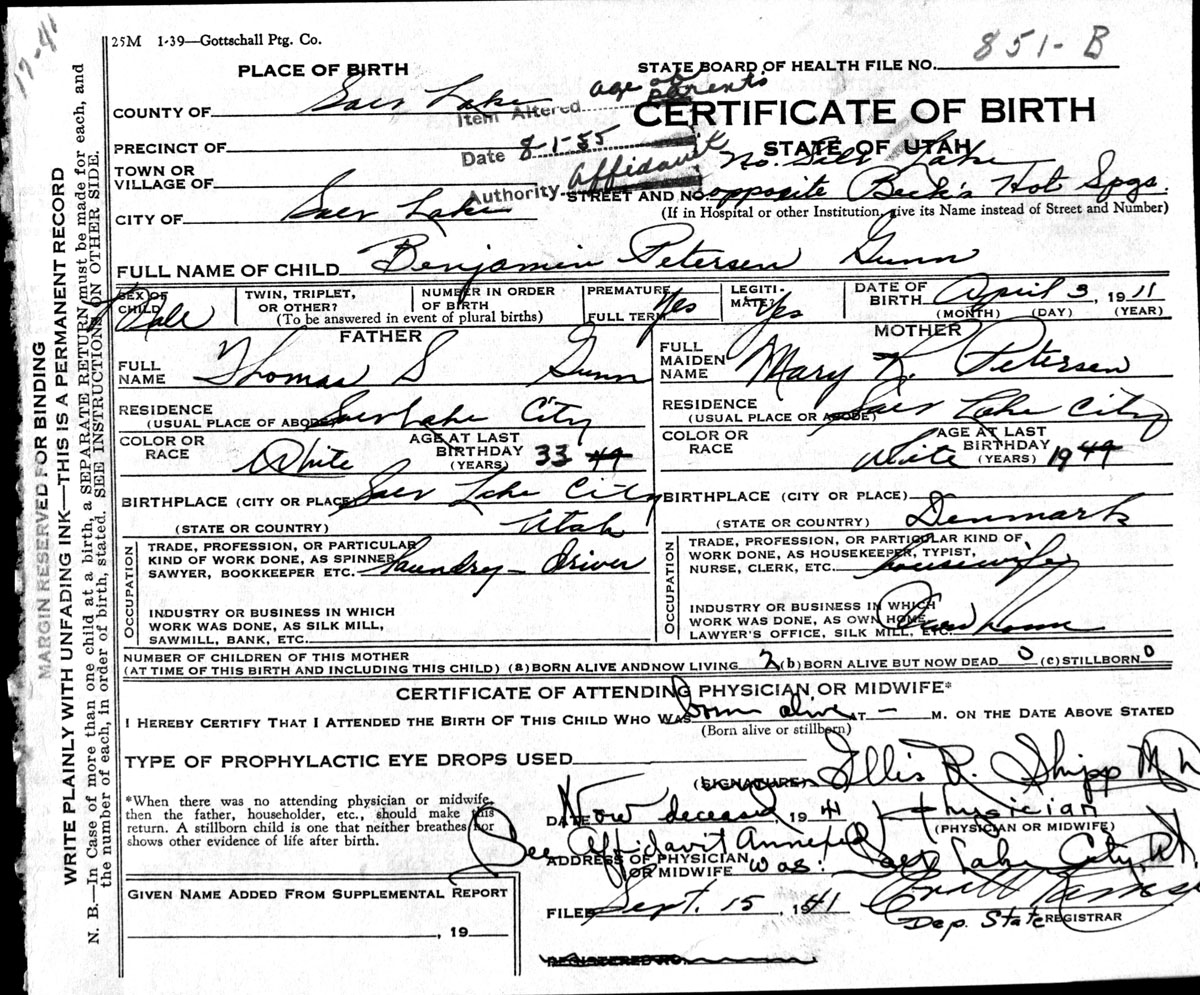 17-41
25M 1-39—Gottschall Ptg. Co.
851-B
PLACE OF BIRTH
STATE BOARD OF HEALTH FILE NO.
COUNTY OF Salt Lake
Item Altered age of parents
CERTIFICATE OF BIRTH
PRECINCT OF
Date 8-1-55
STATE OF UTAH
TOWN OR VILLAGE OF
Authority Affidavit
STREET AND NO. No. Salt Lake
opposite Beck's Hot Spgs.
CITY OF Salt Lake
(If in Hospital or other Institution, give its Name instead of Street and Number)
FULL NAME OF CHILD Benjamin Petersen Gunn
SEX OF CHILD Male
TWIN, TRIPLET, OR OTHER?
NUMBER IN ORDER OF BIRTH
(To be answered in event of plural births)
PREMATURE
FULL TERM Yes
LEGITI-
MATE? Yes
DATE OF BIRTH April 3, 1911
(MONTH) (DAY) (YEAR)
FATHER
FULL NAME Thomas S Gunn
RESIDENCE
(USUAL PLACE OF ABODE) Salt Lake City
COLOR OR RACE White
AGE AT LAST BIRTHDAY (YEARS) 33 49
BIRTHPLACE (CITY OR PLACE) Salt Lake City
(STATE OR COUNTRY) Utah
OCCUPATION
TRADE, PROFESSION, OR PARTICULAR
KIND OF WORK DONE, AS SPINNER,
SAWYER, BOOKKEEPER ETC. Laundry Driver
INDUSTRY OR BUSINESS IN WHICH
WORK WAS DONE, AS SILK MILL,
SAWMILL, BANK, ETC.
MOTHER
FULL MAIDEN NAME Mary K. Petersen
RESIDENCE
(USUAL PLACE OR ABODE) Salt Lake City
COLOR OR RACE White
AGE AT LAST BIRTHDAY (YEARS) 19 49
BIRTHPLACE (CITY OR PLACE)
(STATE OR COUNTRY) Denmark
OCCUPATION
TRADE, PROFESSION, OR PARTICULAR KIND OF
WORK DONE, AS HOUSEKEEPER, TYPIST,
NURSE, CLERK, ETC. housewife
INDUSTRY OR BUSINESS IN WHICH
WORK WAS DONE, AS OWN HOME,
LAWYER'S OFFICE, SILK MILL, ETC. Own home
NUMBER OF CHILDREN OF THIS MOTHER
(AT TIME OF THIS BIRTH AND INCLUDING THIS CHILD) (a) BORN ALIVE AND NOW LIVING 2 (b) BORN ALIVE BUT NOW DEAD 0 (c) STILLBORN 0
CERTIFICATE OF ATTENDING PHYSICIAN OR MIDWIFE*
I HEREBY CERTIFY THAT I ATTENDED THE BIRTH OF THIS CHILD WHO WAS born alive AT – M. ON THE DATE ABOVE STATED
(Born alive or stillborn)
TYPE OF PROPHYLACTIC EYE DROPS USED
(SIGNATURE) Ellis R. Shipp M D
*When there was no attending physician or midwife,
then the father, householder, etc., should make this
return. A stillborn child is one that neither breathes nor
shows other evidence of life after birth.
DATE Now deceased, 1941 Physician
(PHYSICIAN OR MIDWIFE)
See Affidavit Annexed
ADDRESS OF PHYSICIAN OR MIDWIFE was: Salt Lake City, Ut.
GIVEN NAME ADDED FROM SUPPLEMENTAL REPORT
, 19
FILED Sept. 15, 1941
Dep. State REGISTRAR
REGISTERED NO.
MARGIN RESERVED FOR BINDING
WRITE PLAINLY WITH UNFADING INK—THIS IS A PERMANENT RECORD
N. B.—In Case of more than one child at a birth, a SEPARATE RETURN must be made for each, and
the number of each, in order of birth, stated. SEE INSTRUCTIONS ON OTHER SIDE.